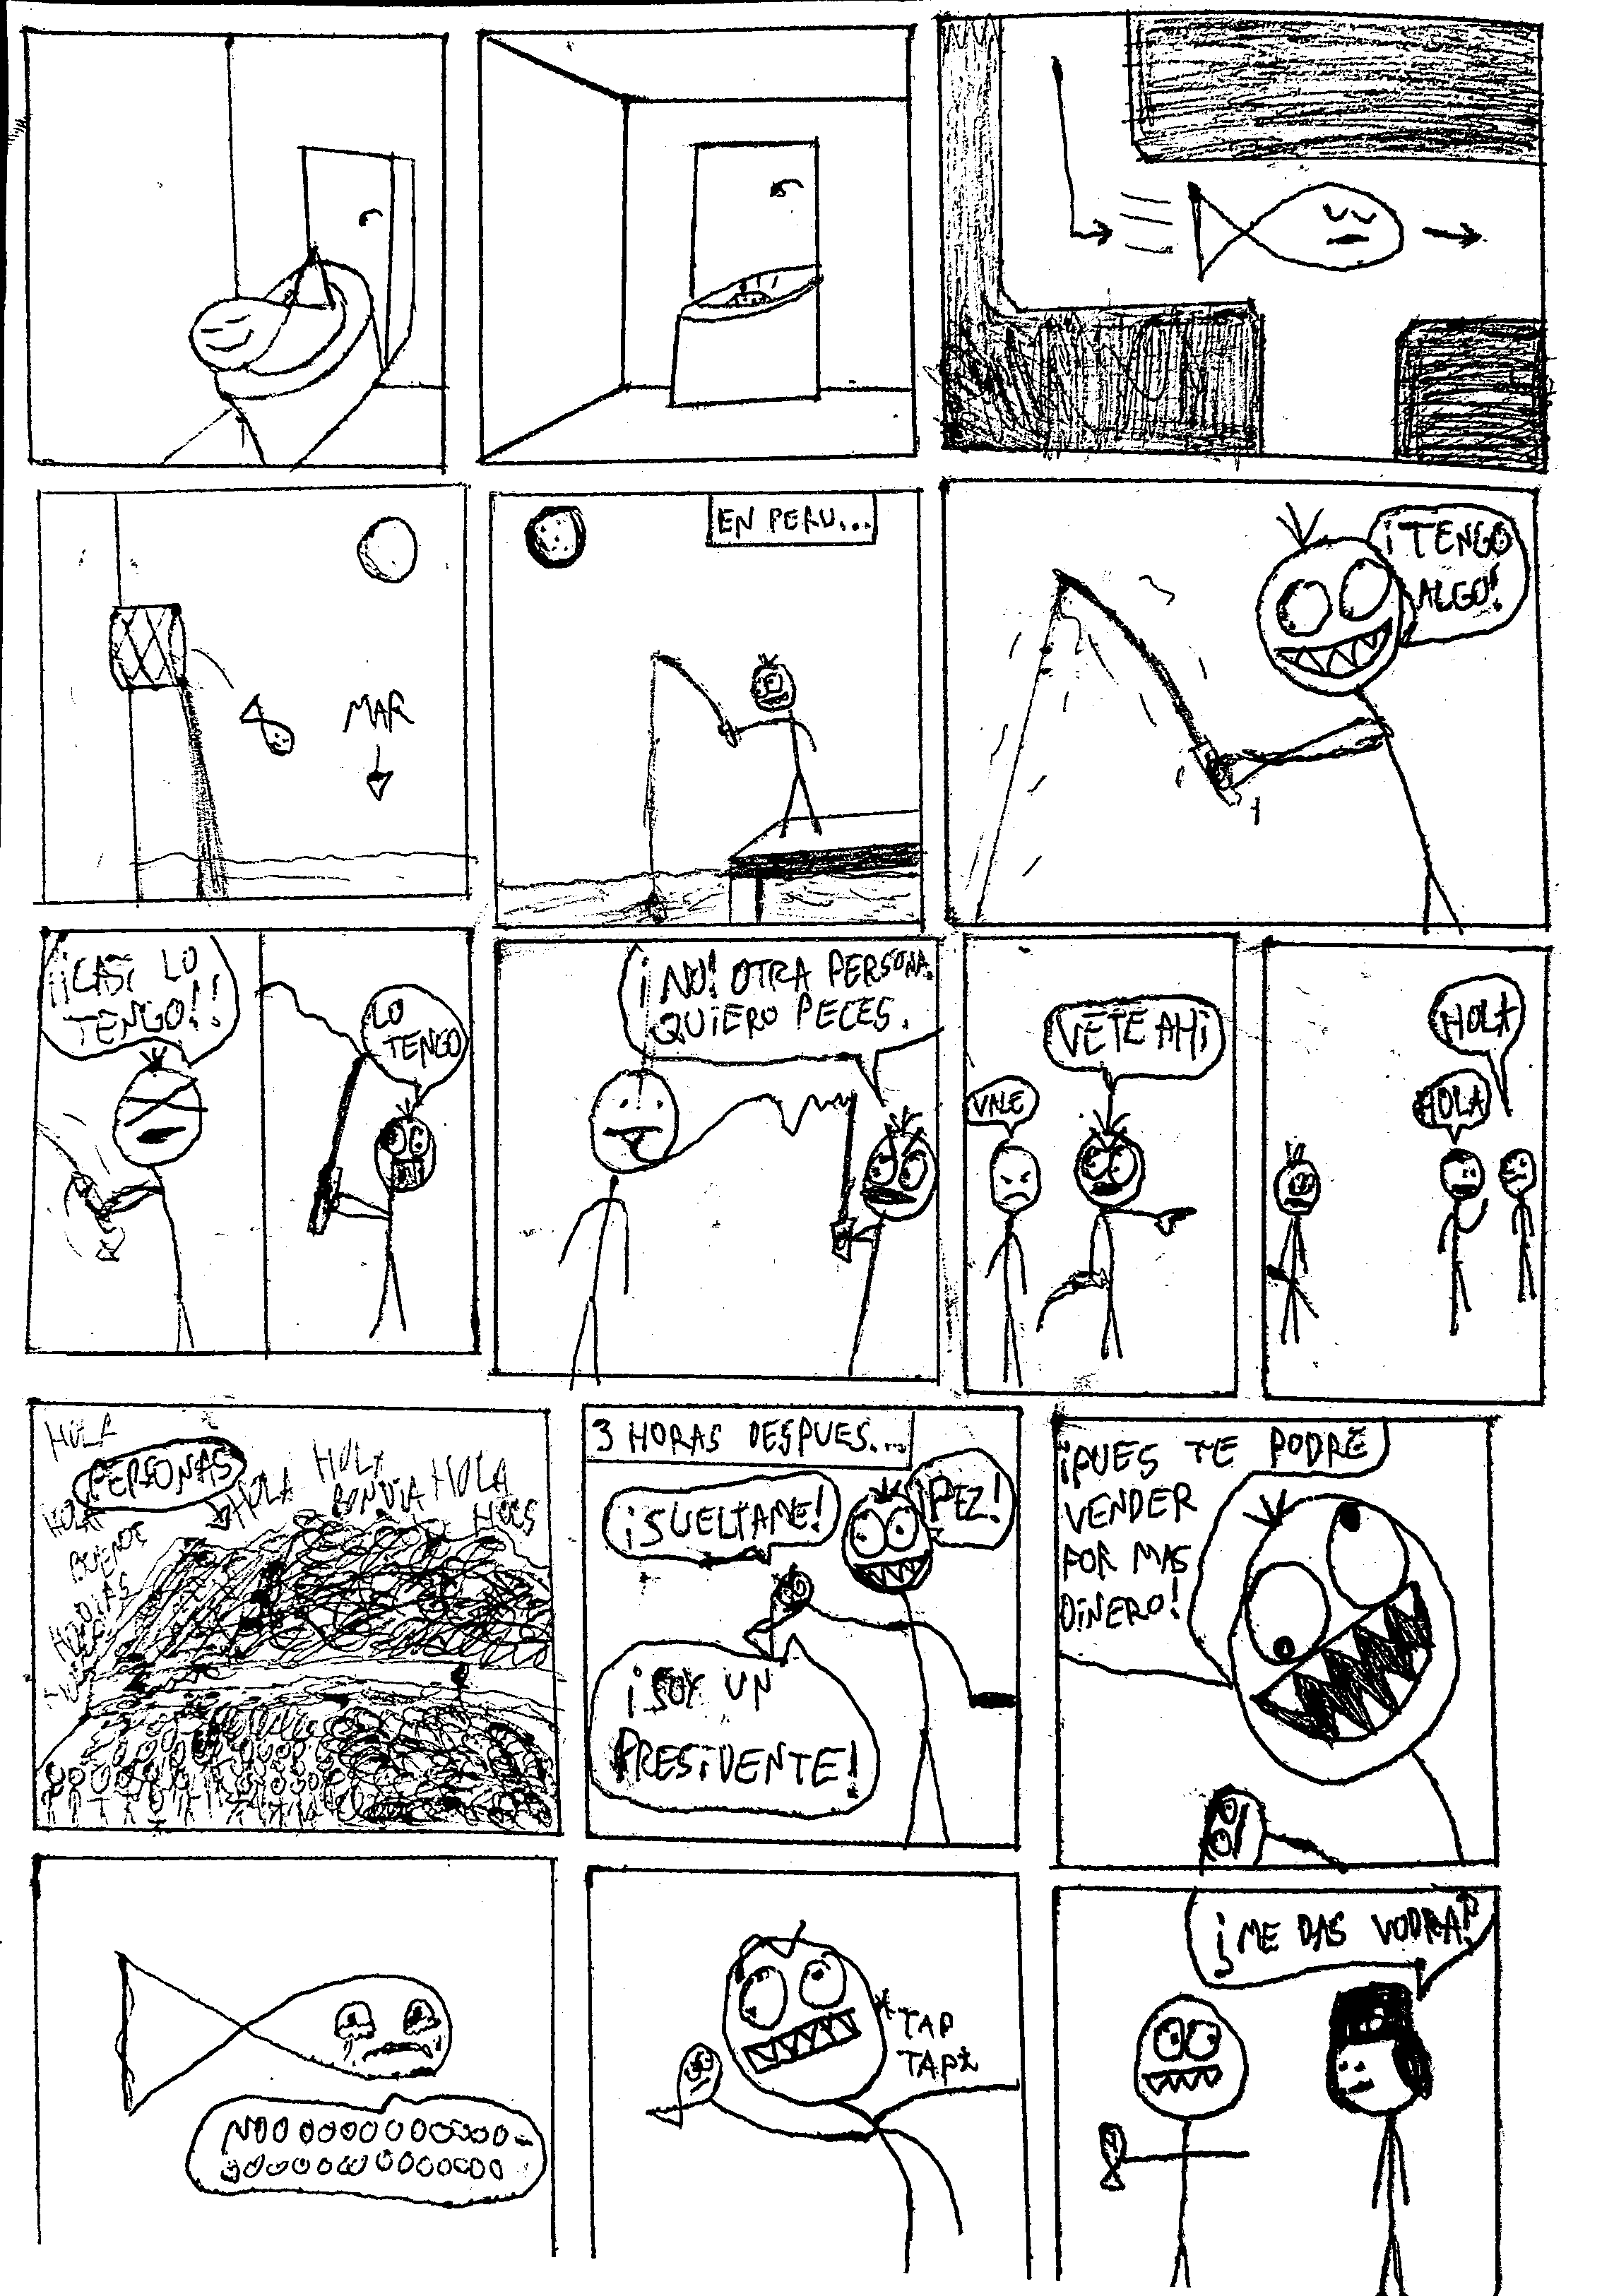 MAR
EN PERU...
¡TENGO
ALGO!
¡¡CASI LO
TENGO!!
LO
TENGO
¡NO! OTRA PERSONA.
QUIERO PECES.
VALE
VETE AHí
HOLA
HOLA
HOLA
PERSONAS
HOLA
HOLA
BUENOS
DIAS
HOLA
HOLA
3 HORAS DESPUES...
¡SUELTAME!
¡PEZ!
¡SOY UN
PRESIDENTE!
¡PUES TE PODRÉ
VENDER
POR MAS
DINERO!
NOOOOOOOOOOOOO-
OOOOOOOOOOOOO
*TAP
TAP*
¡ME DAS VODKA?